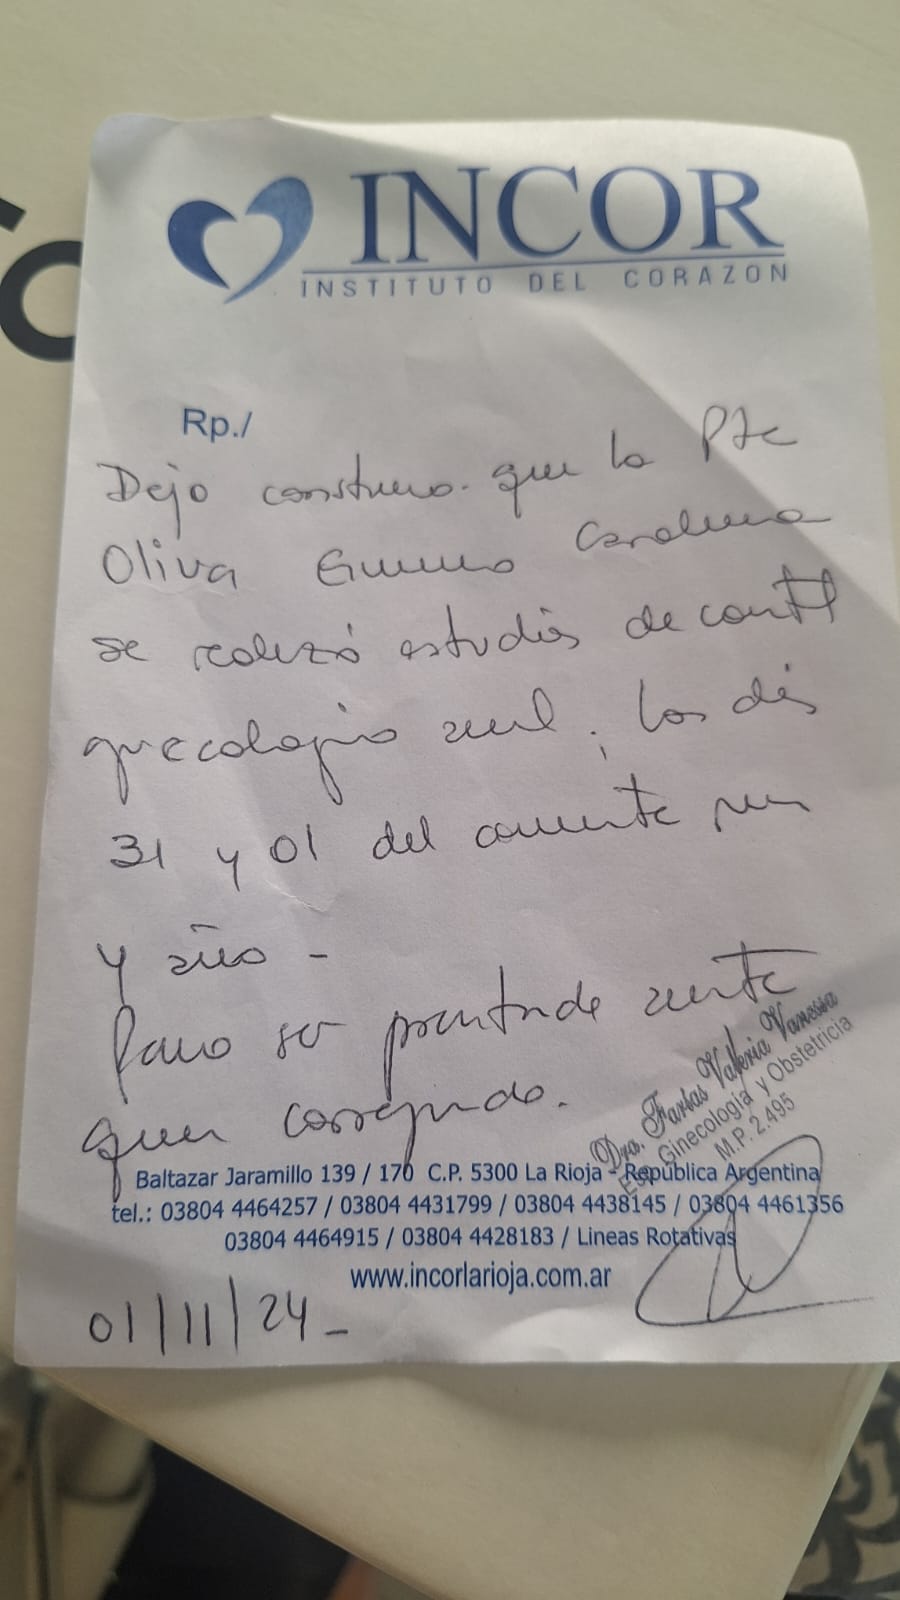 INCOR
INSTITUTO DEL CORAZON
Rp./
Dejo constancia que la Pte
Oliva Gimena Carolina
se realizó estudios de control
ginecologico anual, los días
31 y 01 del corriente mes
y año -
Para ser presentado ante
quien corresponda.
Dra. Farías Valeria Vanessa
Esp. Ginecología y Obstetricia
M.P. 2.495
Baltazar Jaramillo 139 / 170 C.P. 5300 La Rioja - República Argentina
tel.: 03804 4464257 / 03804 4431799 / 03804 4438145 / 03804 4461356
03804 4464915 / 03804 4428183 / Lineas Rotativas
www.incorlarioja.com.ar
01/11/24 -